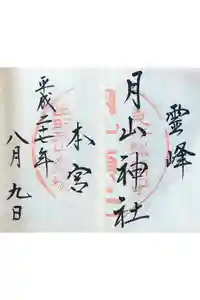 霊峰
月山神社
本宮
平成二十七年
八月九日